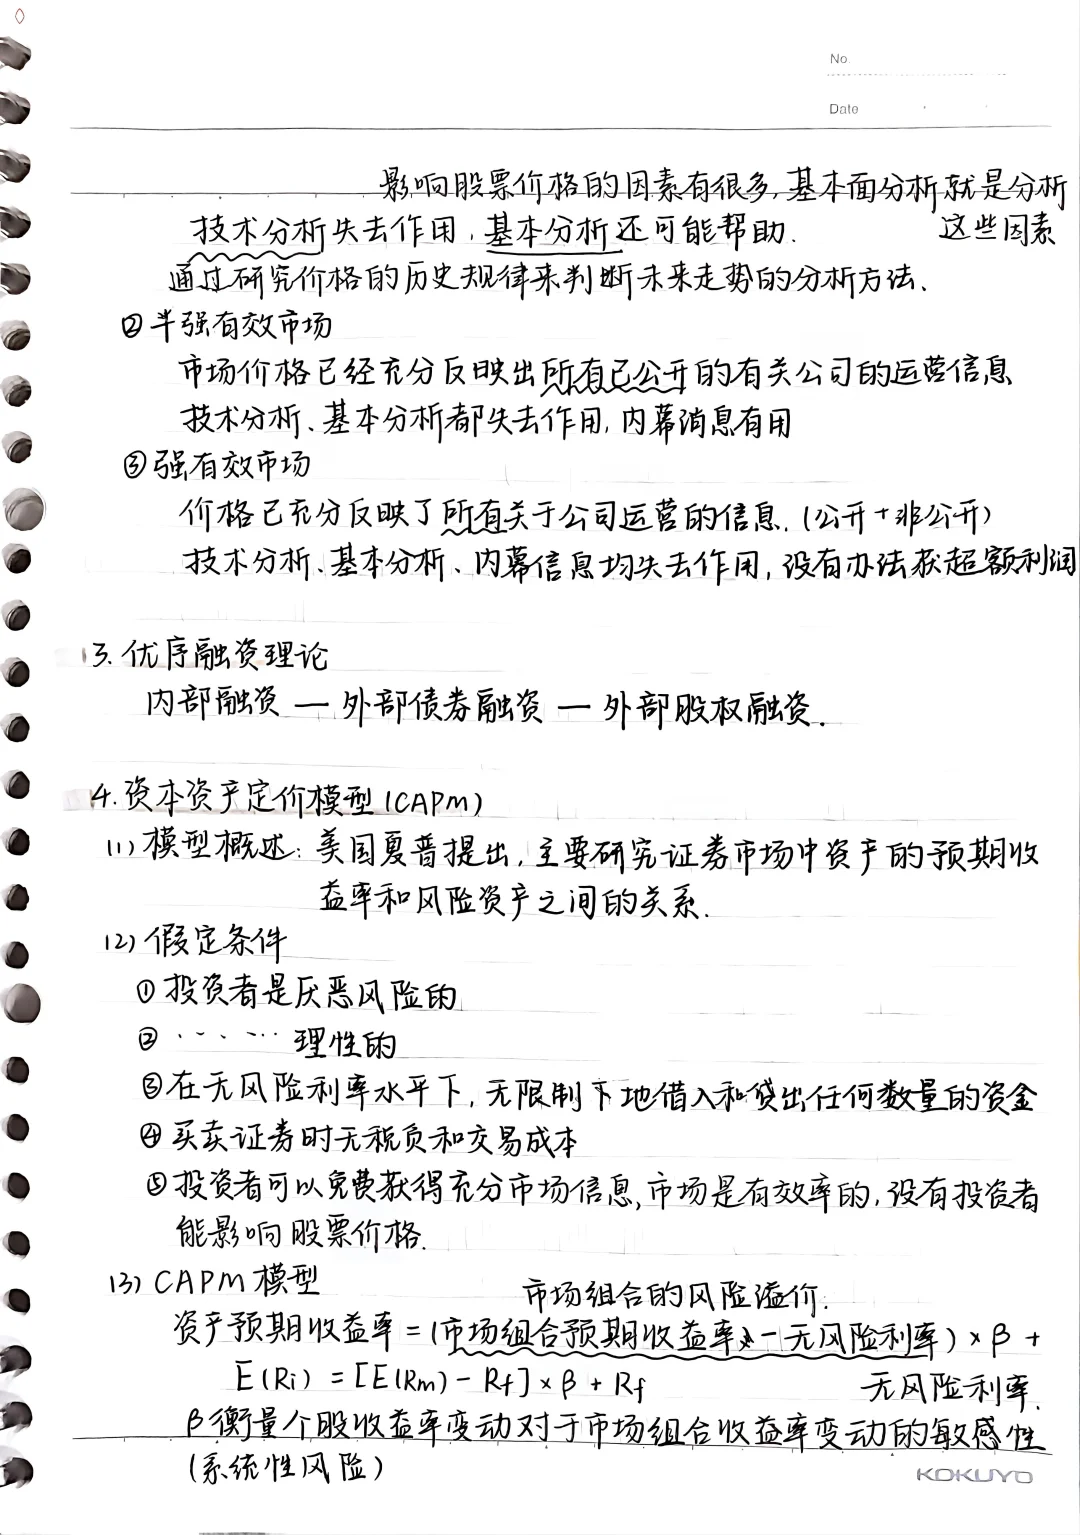 No.
Date
影响股票价格的因素有很多,基本面分析就是分析
技术分析失去作用,基本分析还可能帮助. 这些因素
通过研究价格的历史规律来判断未来走势的分析方法.
②半强有效市场
市场价格已经充分反映出所有已公开的有关公司的运营信息
技术分析、基本分析都失去作用,内幕消息有用
③强有效市场
价格已充分反映了所有关于公司运营的信息.(公开+非公开)
技术分析、基本分析、内幕信息均失去作用,没有办法获超额利润
3.优序融资理论
内部融资—外部债券融资—外部股权融资.
4.资本资产定价模型(CAPM)
(1)模型概述:美国夏普提出,主要研究证券市场中资产的预期收
益率和风险资产之间的关系.
(2)假定条件
①投资者是厌恶风险的
②······理性的
③在无风险利率水平下,无限制下地借入和贷出任何数量的资金
④买卖证券时无税负和交易成本
⑤投资者可以免费获得充分市场信息,市场是有效率的,没有投资者
能影响股票价格.
(3)CAPM模型 市场组合的风险溢价.
资产预期收益率=(市场组合预期收益率-无风险利率)×β+
E(Ri)=[E(Rm)-Rf]×β+Rf 无风险利率.
β衡量个股收益率变动对于市场组合收益率变动的敏感性
(系统性风险)
KOKUYO